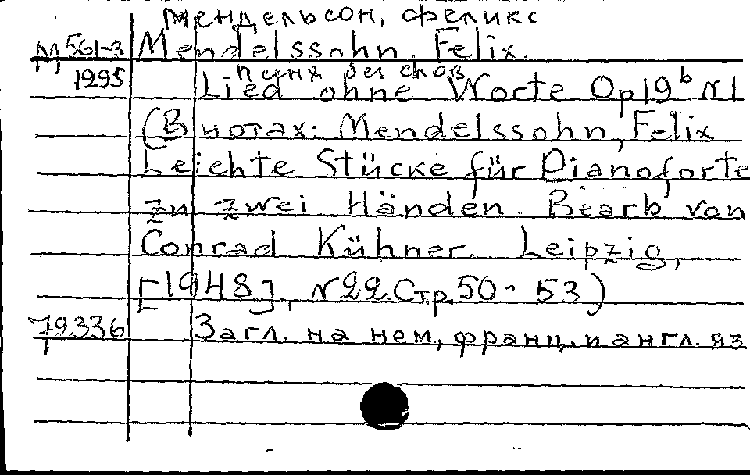 Мендельсон, Феликс
М 561-3 Mendelssohn, Felix.
песня без слов
1295 Lied ohne Worte Op 19 b N 1
(В нотах: Mendelssohn, Felix
Leichte Stücke für Pianoforte
zu zwei Händen. Bearb von
Conrad Kühner. Leipzig,
[1948], N 22 Стр. 50-53)
79336 Загл. на нем, франц. и англ. яз